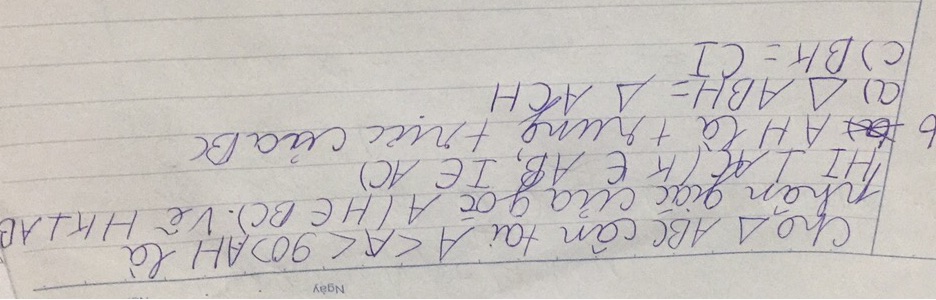 Ngày
Cho Δ ABC cân tại A < A < 90) AH là
phân giác của góc A (H ∈ BC). Vẽ HK ⊥ AB
HI ⊥ AC (K ∈ AB, I ∈ AC)
b AH là trung trực của BC
a) Δ ABH = Δ ACH
c) BK = CI